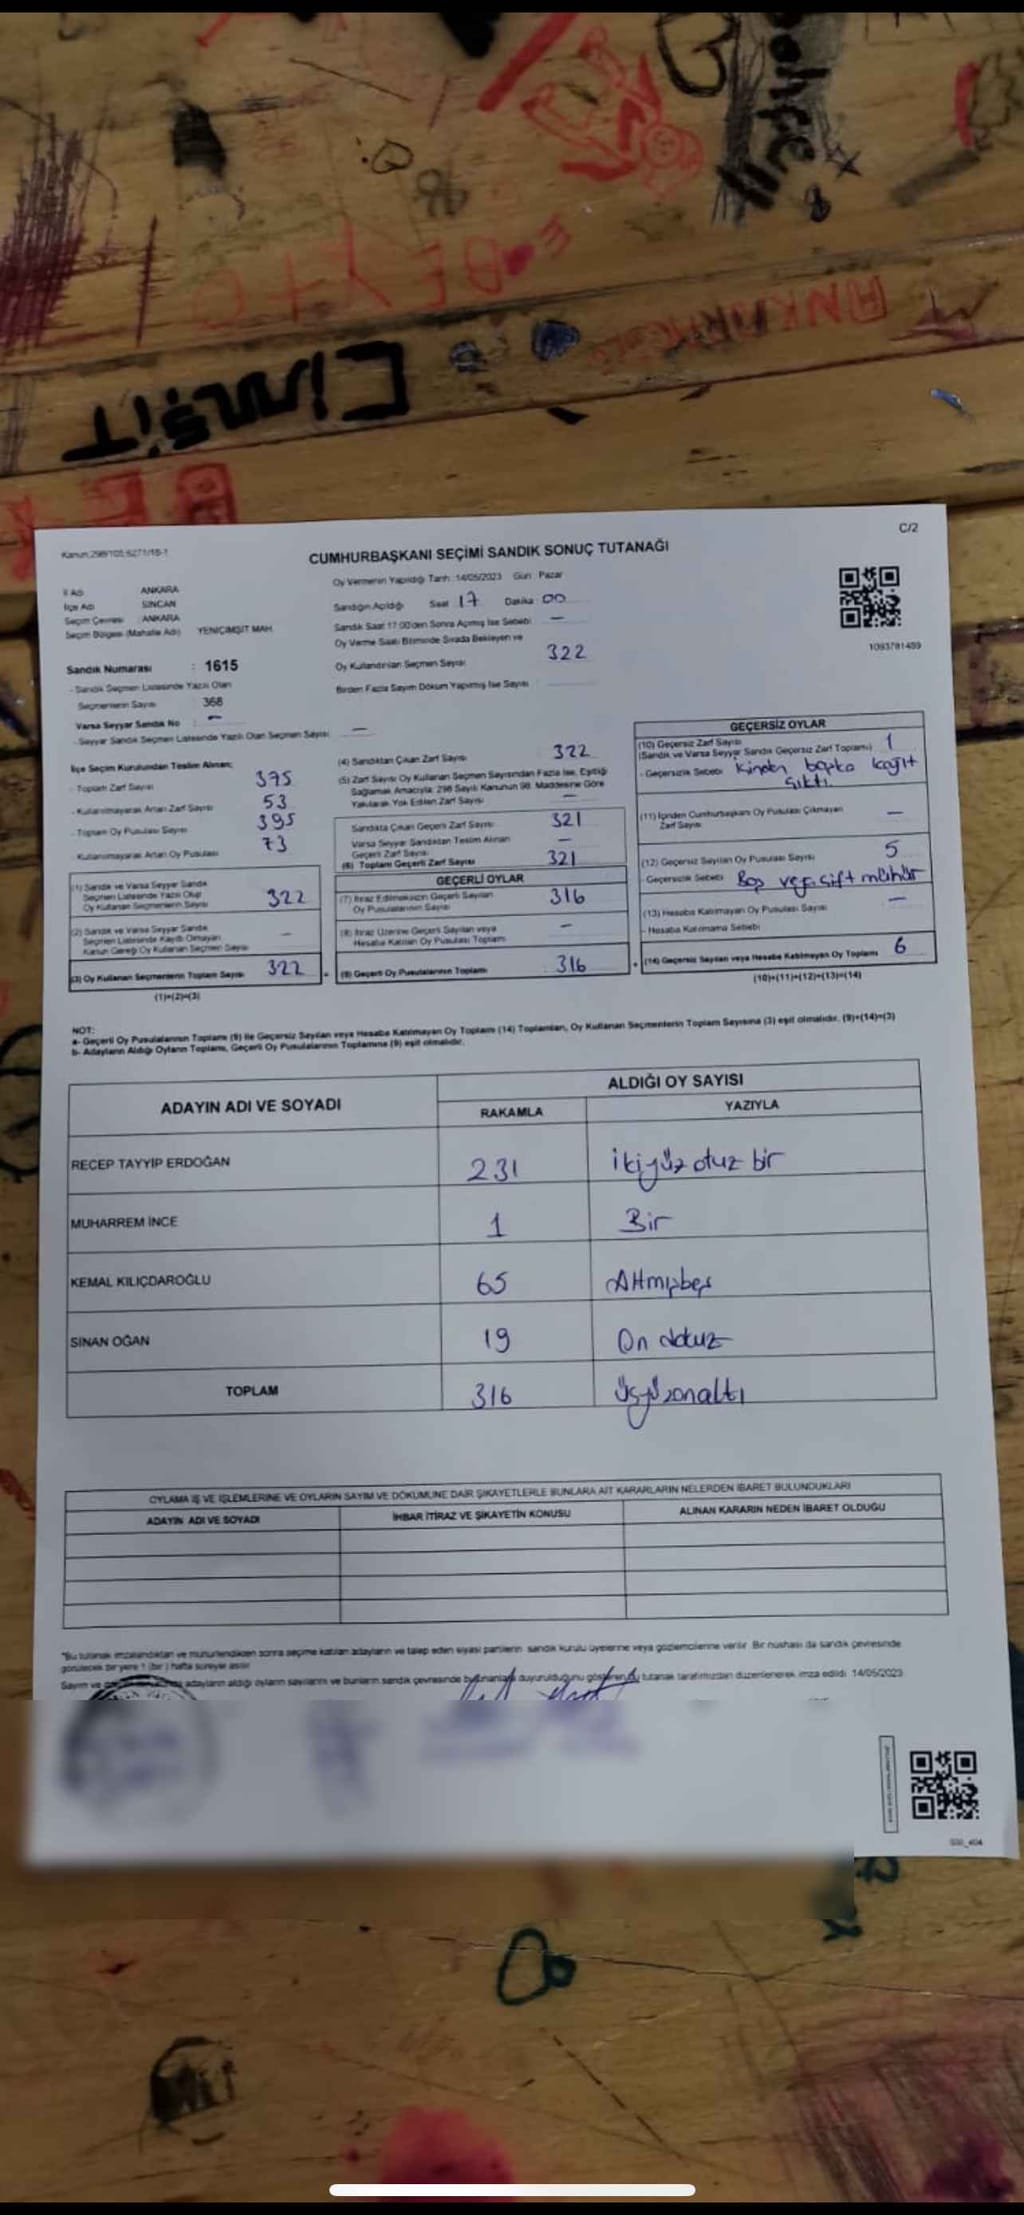 CİMŞİT
C/2
CUMHURBAŞKANI SEÇİMİ SANDIK SONUÇ TUTANAĞI
İl Adı ANKARA
İlçe Adı SİNCAN
Seçim Çevresi : ANKARA
Seçim Bölgesi (Mahalle Adı) YENİCİMŞİT MAH.
Oy Vermenin Yapıldığı Tarih: 14/05/2023 Gün: Pazar
Sandığın Açıldığı Saat 17 Dakika 00
Sandık Saat 17:00'den Sonra Açılmış İse Sebebi —
Oy Verme Saati Bitiminde Sırada Bekleyen ve
Oy Kullandırılan Seçmen Sayısı 322
Birden Fazla Sayım Döküm Yapılmış İse Sayısı
1093781489
Sandık Numarası : 1615
- Sandık Seçmen Listesinde Yazılı Olan
Seçmenlerin Sayısı 368
Varsa Seyyar Sandık No : —
- Seyyar Sandık Seçmen Listesinde Yazılı Olan Seçmen Sayısı —
İlçe Seçim Kurulundan Teslim Alınan;
- Toplam Zarf Sayısı 375
- Kullanılmayarak Artan Zarf Sayısı 53
- Toplam Oy Pusulası Sayısı 395
- Kullanılmayarak Artan Oy Pusulası 73
(1) Sandık ve Varsa Seyyar Sandık
Seçmen Listesinde Yazılı Olup
Oy Kullanan Seçmenlerin Sayısı 322
(2) Sandık ve Varsa Seyyar Sandık
Seçmen Listesinde Kayıtlı Olmayan
Kanun Gereği Oy Kullanan Seçmen Sayısı —
(3) Oy Kullanan Seçmenlerin Toplam Sayısı 322
(1)+(2)=(3)
(4) Sandıktan Çıkan Zarf Sayısı 322
(5) Zarf Sayısı Oy Kullanan Seçmen Sayısından Fazla İse, Eşitliği
Sağlamak Amacıyla; 298 Sayılı Kanunun 98. Maddesine Göre
Yakılarak Yok Edilen Zarf Sayısı —
Sandıkta Çıkan Geçerli Zarf Sayısı 321
Varsa Seyyar Sandıktan Teslim Alınan
Geçerli Zarf Sayısı —
(6) Toplam Geçerli Zarf Sayısı 321
GEÇERLİ OYLAR
(7) İtiraz Edilmeksizin Geçerli Sayılan
Oy Pusulalarının Sayısı 316
(8) İtiraz Üzerine Geçerli Sayılan veya
Hesaba Katılan Oy Pusulası Toplamı —
(9) Geçerli Oy Pusulalarının Toplamı 316
GEÇERSİZ OYLAR
(10) Geçersiz Zarf Sayısı
(Sandık ve Varsa Seyyar Sandık Geçersiz Zarf Toplamı) 1
- Geçersizlik Sebebi başka kağıt
çıktı.
(11) İçinden Cumhurbaşkanı Oy Pusulası Çıkmayan
Zarf Sayısı —
(12) Geçersiz Sayılan Oy Pusulası Sayısı 5
- Geçersizlik Sebebi Boş veya çift mühür
(13) Hesaba Katılmayan Oy Pusulası Sayısı —
- Hesaba Katılmama Sebebi
(14) Geçersiz Sayılan veya Hesaba Katılmayan Oy Toplamı 6
(10)+(11)+(12)+(13)=(14)
NOT:
a- Geçerli Oy Pusulalarının Toplamı (9) ile Geçersiz Sayılan veya Hesaba Katılmayan Oy Toplamı (14) Toplamları, Oy Kullanan Seçmenlerin Toplam Sayısına (3) eşit olmalıdır. (9)+(14)=(3)
b- Adayların Aldığı Oyların Toplamı, Geçerli Oy Pusulalarının Toplamına (9) eşit olmalıdır.
ADAYIN ADI VE SOYADI
ALDIĞI OY SAYISI
RAKAMLA YAZIYLA
RECEP TAYYİP ERDOĞAN 231 ikiyüz otuz bir
MUHARREM İNCE 1 Bir
KEMAL KILIÇDAROĞLU 65 Altmışbeş
SİNAN OĞAN 19 On dokuz
TOPLAM 316 üçyüzonaltı
OYLAMA İŞ VE İŞLEMLERİNE VE OYLARIN SAYIM VE DÖKÜMÜNE DAİR ŞİKAYETLERLE BUNLARA AİT KARARLARIN NELERDEN İBARET BULUNDUKLARI
ADAYIN ADI VE SOYADI İHBAR İTİRAZ VE ŞİKAYETİN KONUSU ALINAN KARARIN NEDEN İBARET OLDUĞU
*Bu tutanak imzalandıktan ve mühürlendikten sonra seçime katılan adayların ve talep eden siyasi partilerin sandık kurulu üyelerine veya gözlemcilerine verilir. Bir nüshası da sandık çevresinde
görülecek bir yere 1 (bir) hafta süreyle asılır.
Sayım ve adayların aldığı oyların sayılarını ve bunların sandık çevresinde duyurulduğunu gösteren tutanak tarafımızdan düzenlenerek imza edildi. 14/05/2023